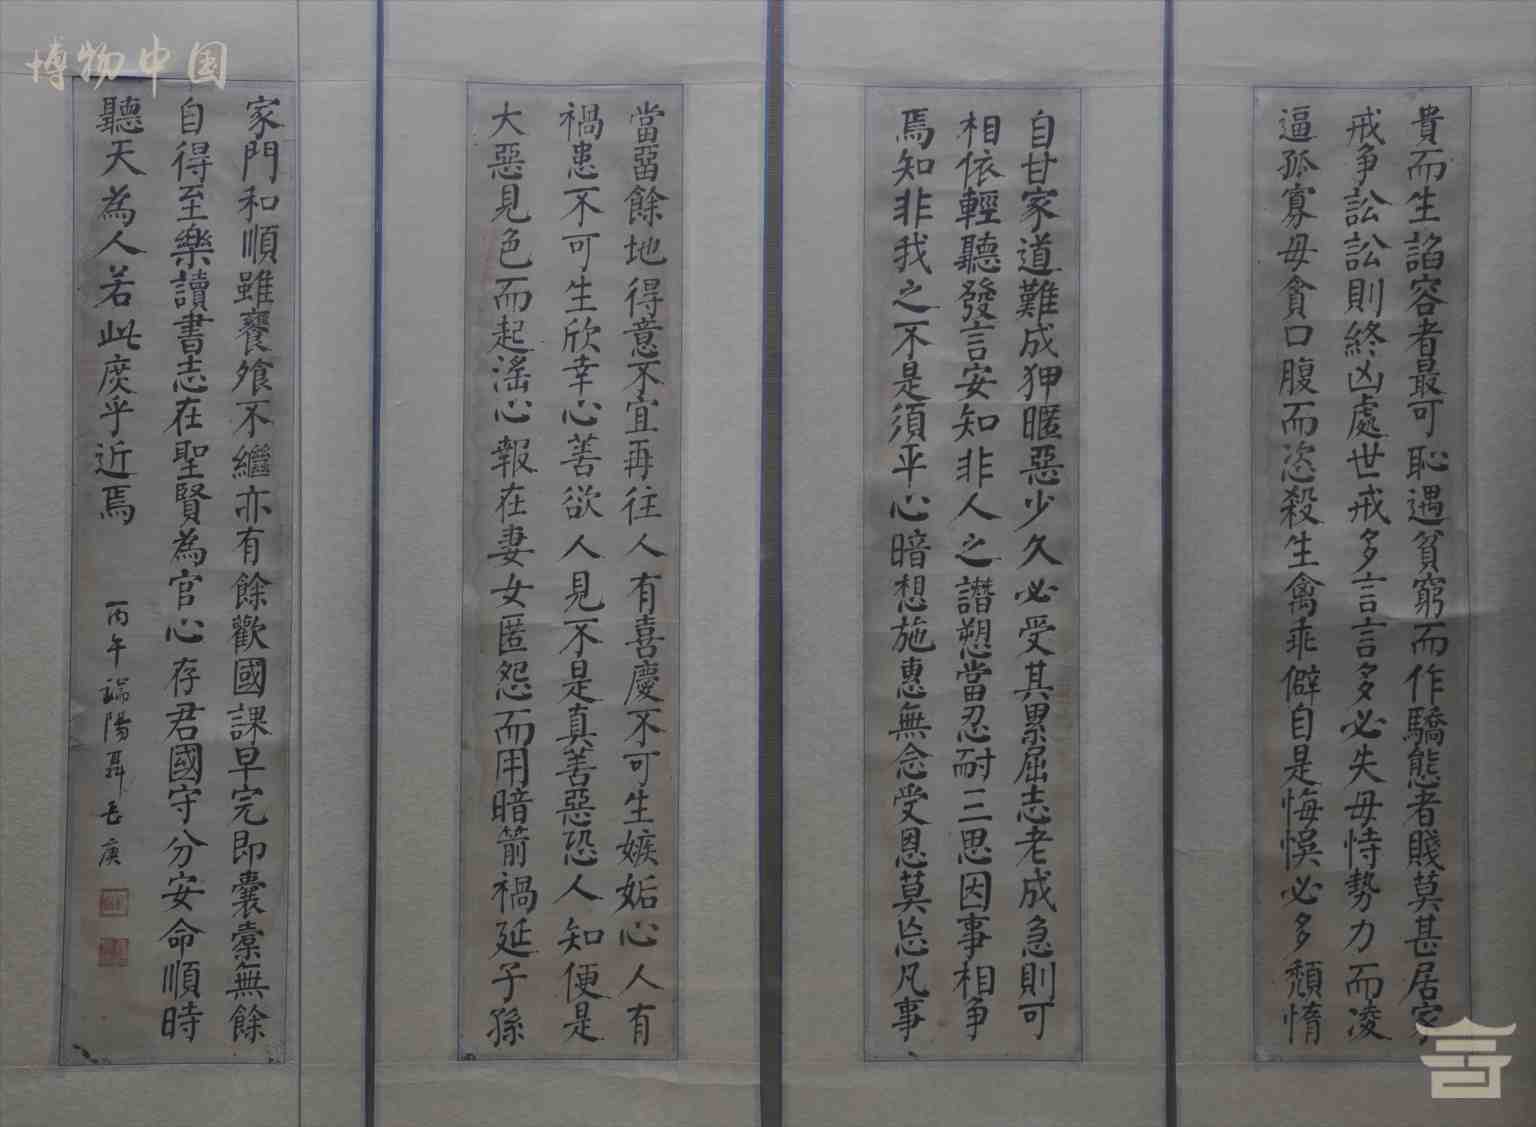 博物中国
貴而生諂容者最可恥遇貧窮而作驕態者賤莫甚居家
戒爭訟訟則終凶處世戒多言言多必失毋恃勢力而凌
逼孤寡毋貪口腹而恣殺生禽乖僻自是悔悞必多頹惰
自甘家道難成狎暱惡少久必受其累屈志老成急則可
相依輕聽發言安知非人之譖愬當忍耐三思因事相争
焉知非我之不是須平心暗想施惠無念受恩莫忘凡事
當畱餘地得意不宜再往人有喜慶不可生嫉妬心人有
禍患不可生欣幸心善欲人見不是真善惡恐人知便是
大惡見色而起滛心報在妻女匿怨而用暗箭禍延子孫
家門和順雖饔飧不繼亦有餘歡國課早完即囊橐無餘
自得至樂讀書志在聖賢為官心存君國守分安命順時
聽天為人若此庶乎近焉
丙午端陽聶長庚